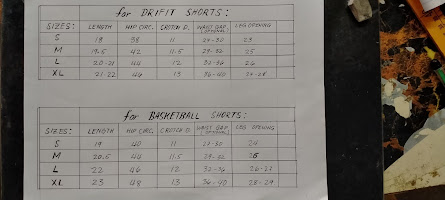 for DRIFIT SHORTS:
SIZES: LENGTH HIP CIRC. CROTCH D. WAIST GAP (OPTIONAL) LEG OPENING
S 18 38 11 27-30 23
M 19.5 42 11.5 29-32 25
L 20-21 44 12 32-36 26
XL 21-22 46 13 36-40 27-28
for BASKETBALL SHORTS:
SIZES: LENGTH HIP CIRC. CROTCH D. WAIST GAP (OPTIONAL) LEG OPENING
S 19 40 11 27-30 24
M 20.5 44 11.5 29-32 25
L 22 46 12 32-36 26-27
XL 23 48 13 36-40 28-29